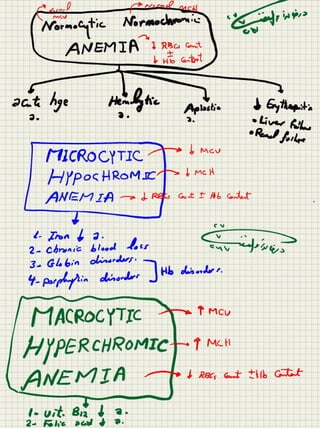 normal MCV
normal MCH
Normocytic Normochromic
ANEMIA
↓ RBCs Count
±
↓ Hb Content
acut hge a.
Hemolytic a.
Aplastic a.
↓ Erythropoitin
• Liver failure
• Renal failure
MICROCYTIC → ↓ MCV
HYPOCHROMIC → ↓ MCH
ANEMIA → ↓ RBCs Count ± Hb Content
1- Iron ↓ a.
2- Chronic blood loss
3- Globin disorders.
4- porphyrin disorders
Hb disorders.
MACROCYTIC → ↑ MCV
HYPERCHROMIC → ↑ MCH
ANEMIA → ↓ RBCs Count ± Hb Content
1- vit. B12 ↓ a.
2- Folic acid ↓ a.